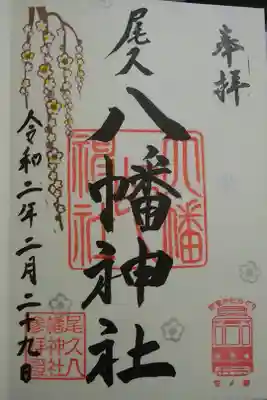 奉拝
尾久
八幡神社
八幡
神社
令和二年二月二十九日
尾久八
幡神社
参拝記